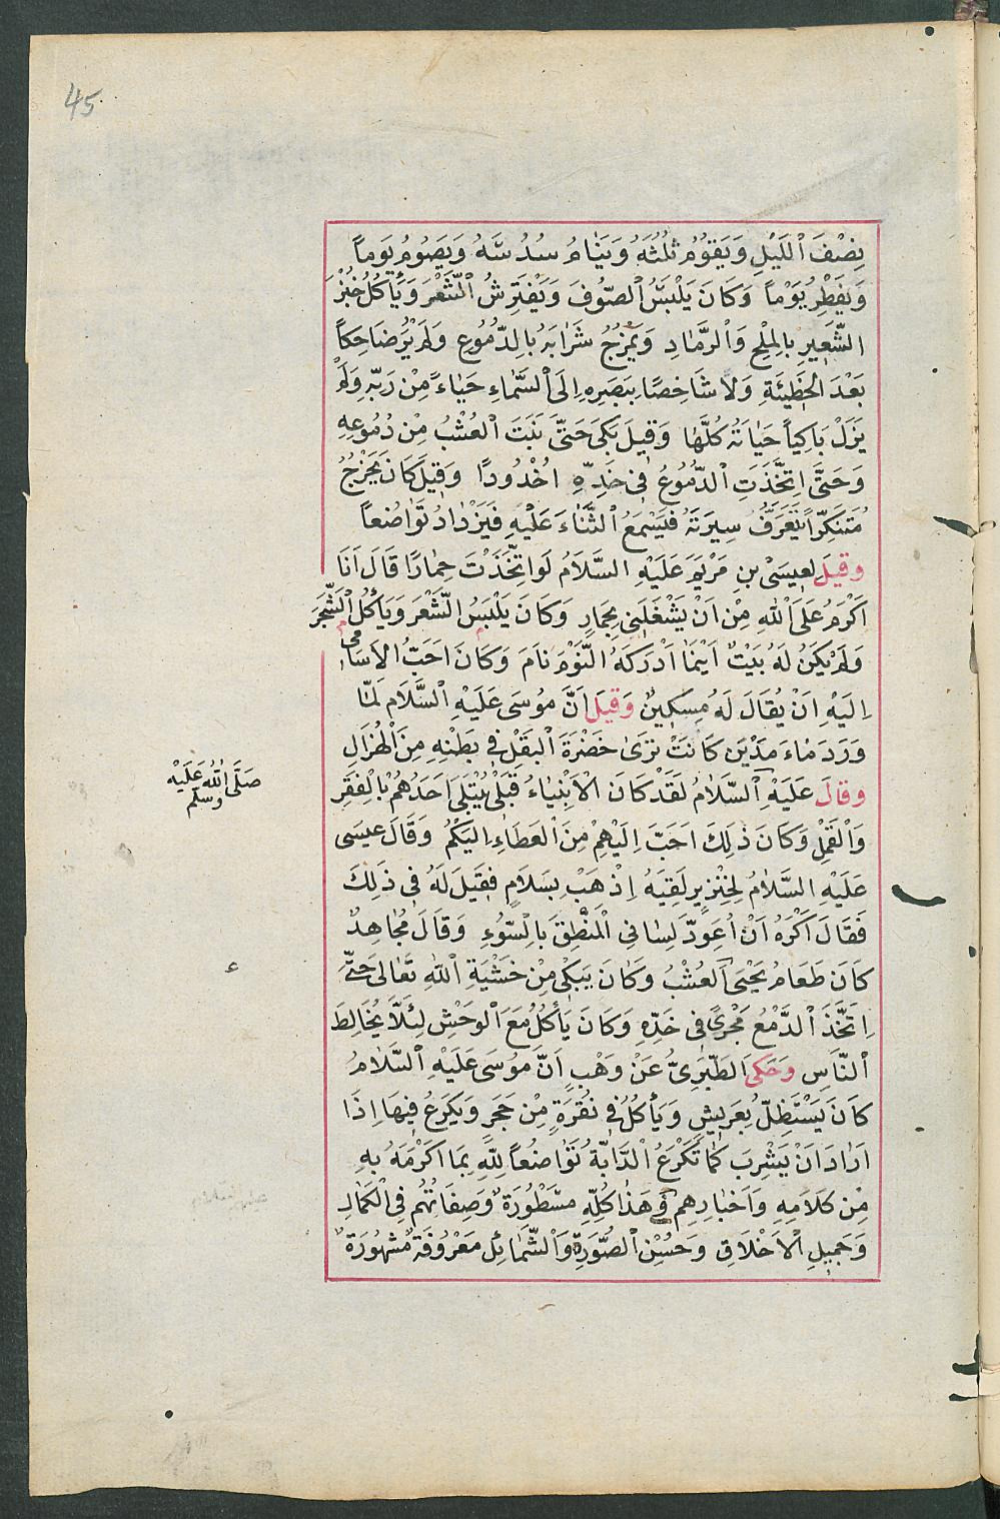 45
نِصْفَ اَللَّيْلِ وَيَقُوُمُ ثُلُثَهُ وَيَنَامُ سُدُسَهُ وَيَصُومُ يَوماً
وَيُفْطِرُ يَوْماً وَكَانَ يَلْبَسُ اَلصّوُفَ وَيَفْتَرِشُ اَلشَّعْرَ وَيَأكُلُ خُبْزَ
الشَّعِيرِ بِالمِلْحِ وَاَلرَّمَادِ وَيَمْزِجُ شَرَابَهُ بِالدّمُوُعِ وَلَمْ يُرَضَاحِكاً
بَعْدَ الخَطِيْئَةِ وَلاَ شَاخِصًا بِبَصَرِهِ اِلَى اَلسَّمَاءِ حَيَاءً مِنْ رَبّهِ وَلَمْ
يَزَلْ بَاكِياً حَيَاتَهُ كُلَّهَا وَقِيلَ بَكَى حَتَّى نَبَتَ اَلعُشْبُ مِنْ دُمُوعِهِ
وَحَتَّى اِتَّخَذَتِ اَلدُّمُوُعُ فِى خَدِّهِ اُخْدُودًا وَقِيلَ كَانَ يَخْرُجُ
مُتَنَكِّراً يَتَعَرَّفُ سِيرَتَهُ فَيَسْمَعُ اَلثَّنَاءَ عَلَيْهِ فَيَزْدَادُ تَوَاضُعاً
وقيلَ لعِيسَىْ بنِ مَرْيَمَ عَلَيْهِ السَّلاَمُ لَوِاتّخَذْتَ حِمَارًا قَالَ اَنَا
اَكْرَمُ عَلَى اَللهِ مِنْ اَنْ يَشْغَلَنِى بِحِمَارٍ وَكَانَ يَلْبَسُ الشَّعْرَ وَيَأكُلُ اَلشَّجَرَ
وَلَمْ يَكُنْ لَهُ بَيْتٌ اَيْنَمَا اَدْرَكَهُ النَّوْمُ نَامَ وَكَانَ اَحَبّ الاَسَامِى
اِلَيْهِ اَنْ يُقَالَ لَهُ مِسْكِينٌ وَقيلَ اَنَّ مُوسَى عَلَيْهِ اَلسَّلاَمُ لَمّا
وَرَدَ مَاءَ مَدْيَنَ كَانَتْ تُرَىٰ خَضْرَةَ اَلبَقْلِ فِى بَطْنِهِ مِنَ اَلْهُزَالِ
وقالَ عَلَيْهِ اَلسَّلاَمُ لَقَدْ كَانَ الاَنْبِيَاءُ قَبْلى يُبْتَلَى اَحَدُهُمْ بِالْفَقِرِ
وَاَلْقَمْلِ وَكَانَ ذٰلِكَ اَحَبّ اِلَيْهِمْ مِنَ اَلعَطَاءِ اِلَيْكُمْ وَقَالَ عيسَى
عَلَيْهِ السَّلاَمُ لِخِنْزِيرٍ لَقِيَهُ اِذْهَبْ بِسَلاَمٍ فَقِيلَ لَهُ فِى ذَلِكَ
فَقَالَ اَكْرَهُ اَنْ اُعَوِدّ لِسَانِى اَلْمنْطِقَ بِالسّوُءِ وَقَالَ مُجَاهِدٌ
كَانَ طَعَامُ يَحْيَى اَلعُشْبُ وَكَانَ يَبْكِى مِنْ خَشْيَةِ اَللهِ تَعَالى حَتَّى
اِتَّخَذَ اَلدَّمْعُ مَجْرًى فِى خَدِّهِ وَكَانَ يَأكُلُ مَعَ اَلوَحْشِ لِئَلاّ يُخَالِطَ
اَلنّاَسِ وحَكىَ اَلطَّبَرِىُّ عَنْ وَهْبٍ اَنَّ مُوسَى عَلَيْهِ اَلسَّلاَمُ
كاَنَ يَسْتَظِلّ بِعَرِيشٍ وَيَأكُلُ فِى نُقْرَةٍ مِنْ حَجَرٍ وَيَكْرَعُ فِيهَا اِذَا
اَرَادَ اَنْ يَشْرِبَ كَمَا تَكْرَعُ اَلدَّابّةُ تَوَاضُعاً لِلّهِ بِمَا اَكْرَمَهُ بِهِ
مِنْ كَلاَمِهِ وَاَخْبَارِهِم فِى هَذَا كُلّهِ مسْطُورَةٌ وَصِفَاتُهُم فِى اَلْكَمَالِ
وَجَمِيلِ اَلاَخْلاَقِ وَحُسْنِ اَلصُّوَرَةِ وَاَلشَّمَائِلِ مَعْرُوفَةٌ مَشْهُورَةٌ
صَلَّى اَللهُ عَلَيْهِ
وسَلّم
ع
عليه السلام